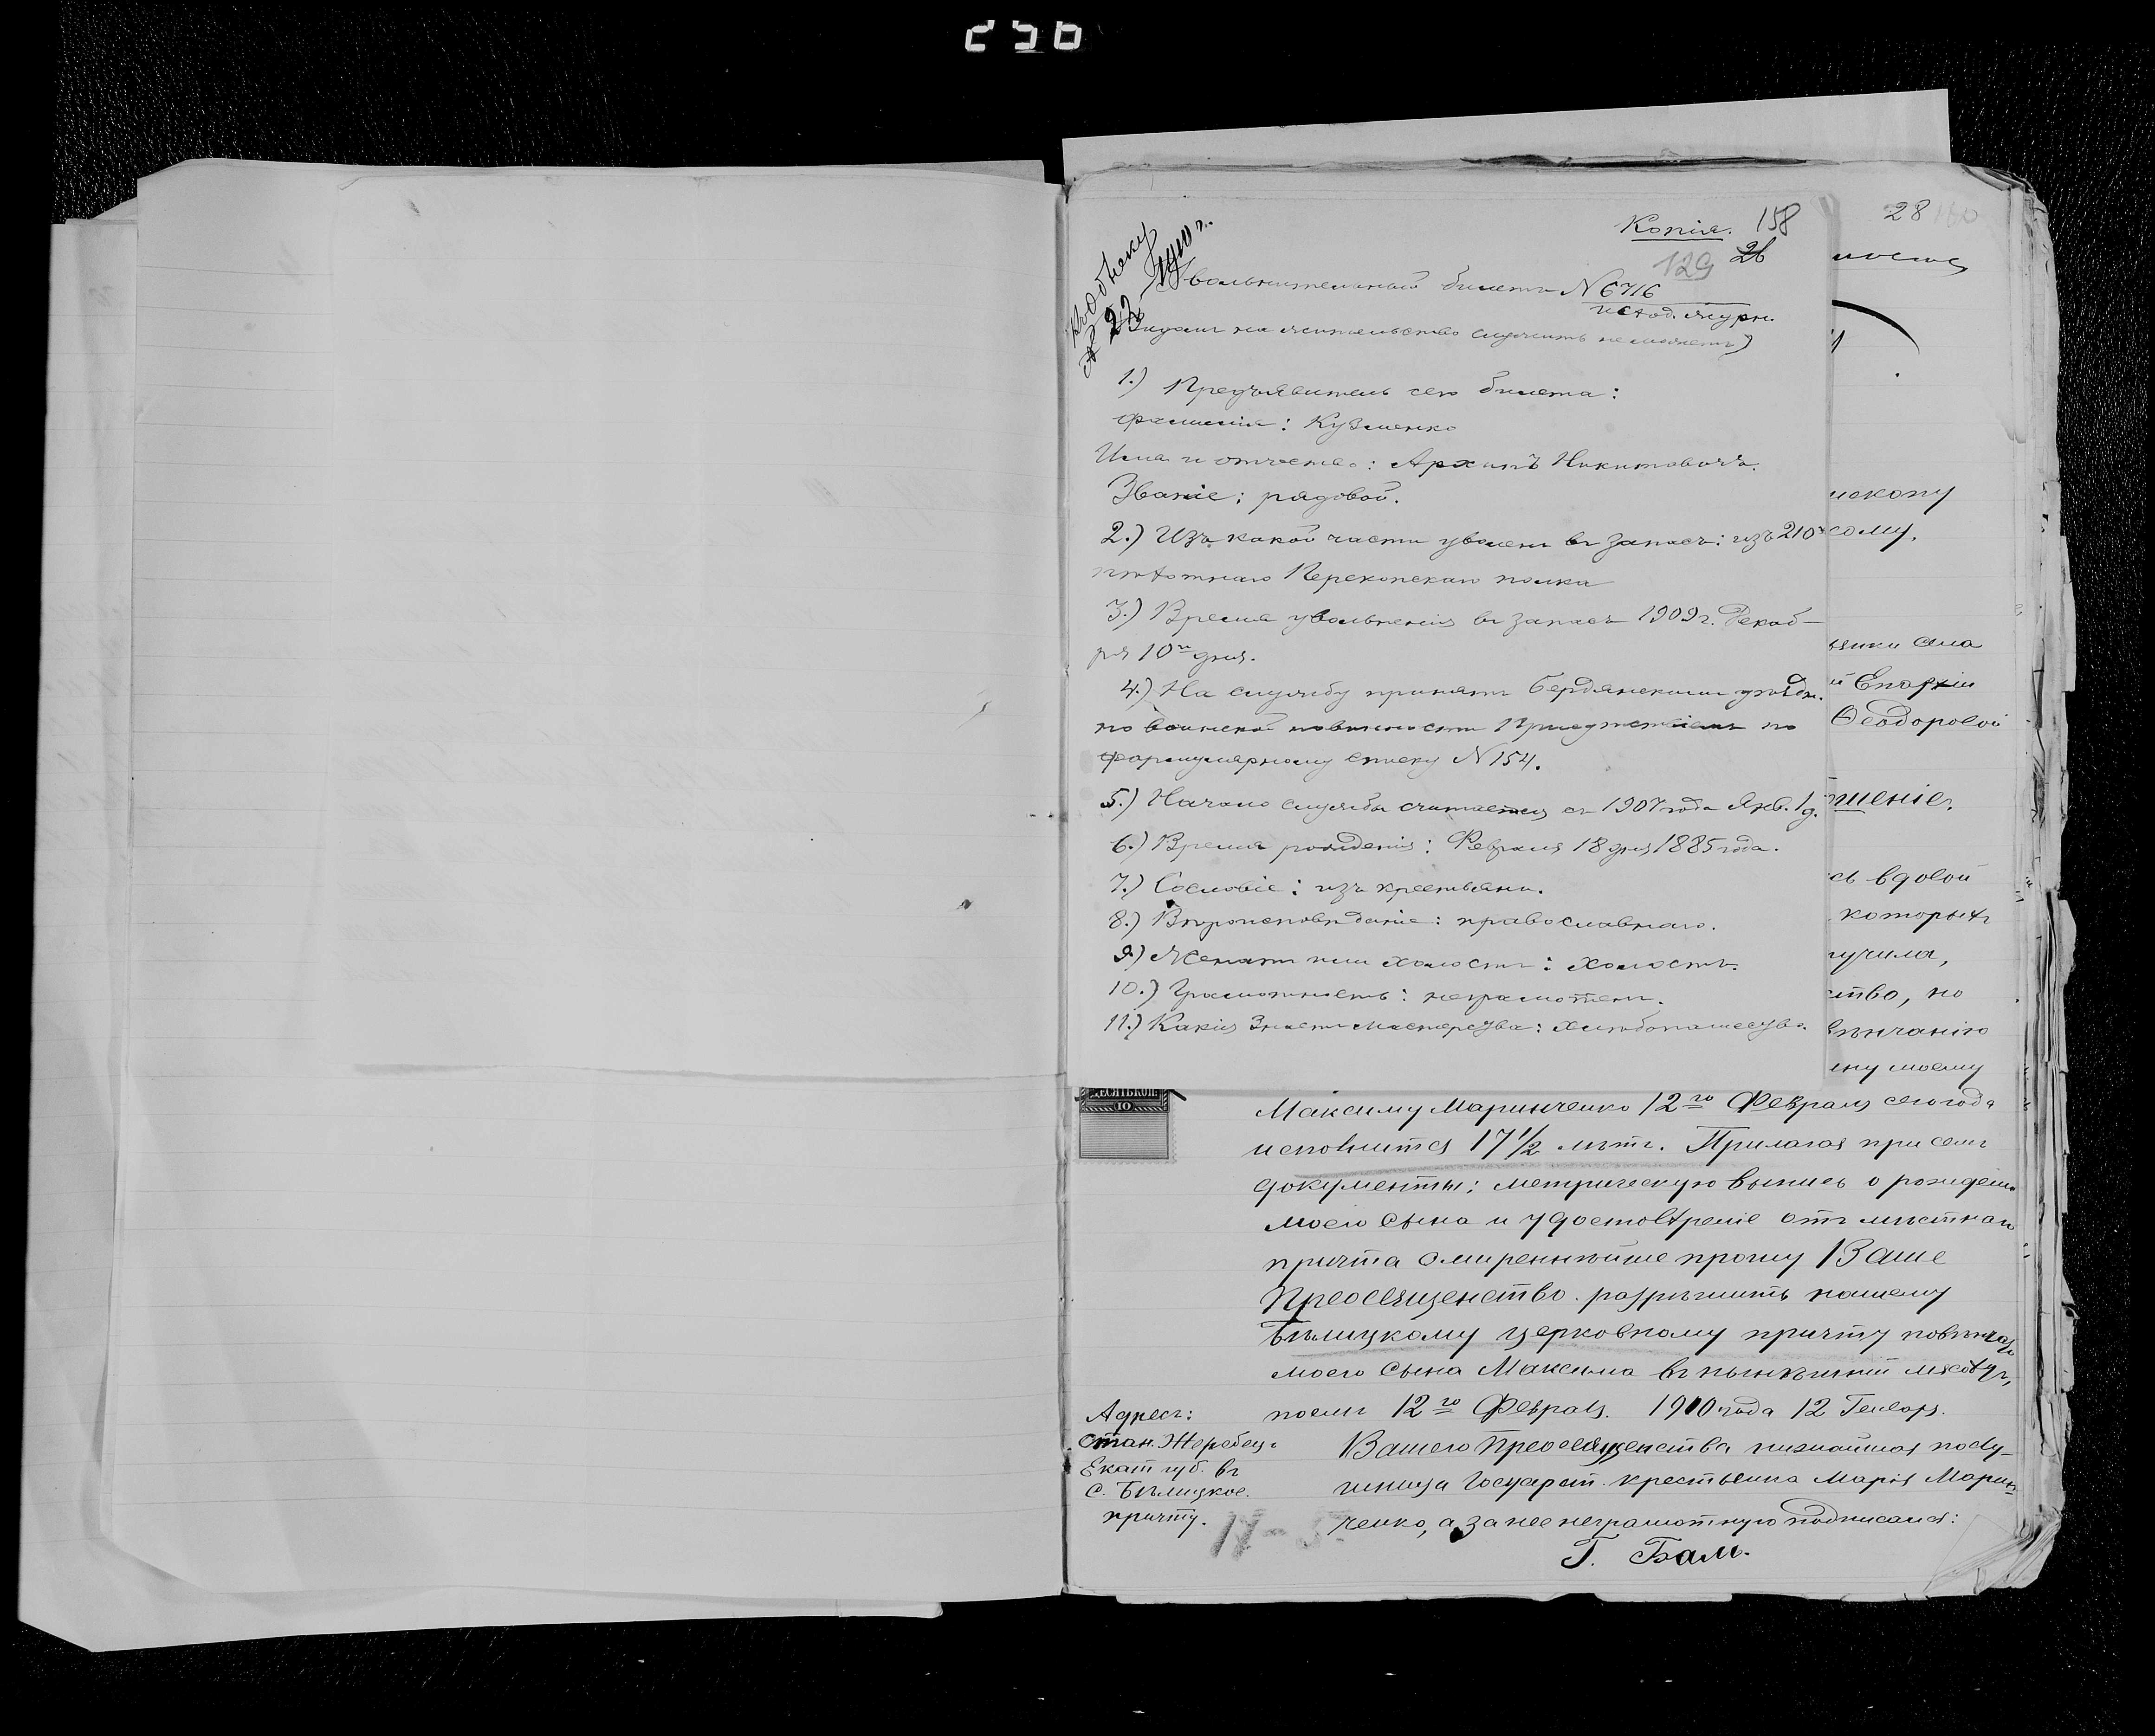 256
Копія. 158
129 26
Къ обыску
№ 22 1910 г.
Увольнительный билетъ № 6716
исход. журн.
(Видомъ на жительство служить не можетъ)
1.) Предъявитель сего билета:
фамилія: Кузменко
Имя и отчество: Архипъ Никитовичъ.
Званіе: рядовой.
2.) Изъ какой части уволенъ въ запасъ: изъ 210
пѣхотнаго Перекопскаго полка
3.) Время увольненія въ запасъ 1909 г. Декаб-
ря 10го дня.
4.) На службу принятъ Бердянскимъ уѣздн.
по воинской повинности Присутствіемъ по
формулярному списку № 154.
5.) Начало службы считается съ 1907 года Янв. 1 д.
6.) Время рожденія: Февраля 18 дня 1885 года.
7.) Сословіе: изъ крестьянъ.
8.) Вѣроисповѣданіе: православнаго.
9.) Женатъ или холостъ: холостъ.
10.) Грамотность: неграмотенъ.
11.) Какія знаетъ мастерства: хлѣбопашество.
28 160
искому
сому.
ина села
й Епархіи
Ѳеодоровой
шеніе.
сь вдовой
которыхъ
учила,
ство, но
вѣнчанію
ну моему
ДЕСЯТЬ КОП.
10
Максиму Маринченко 12го Февраля сего года
исполнится 17 1/2 лѣтъ. Прилагая при семъ
документы: метрическую выпись о рожденіи
моего сына и удостовѣреніе отъ мѣстнаго
причта смиреннѣйше прошу Ваше
Преосвященство разрѣшить нашему
Бѣлицкому церковному причту повѣнчать
моего сына Максима въ нынѣшній мясоѣдъ,
послѣ 12го Февраля. 1910 года 12 Генваря.
Вашего Преосвященства нижайшая послу-
шница Государст. крестьянка Марія Марин-
ченко, а за нее неграмотную подписался:
Г. Бам.
Адресъ:
стан. Жеребец.
Екат губ. въ
с. Бѣлицкое.
причту.
17-5